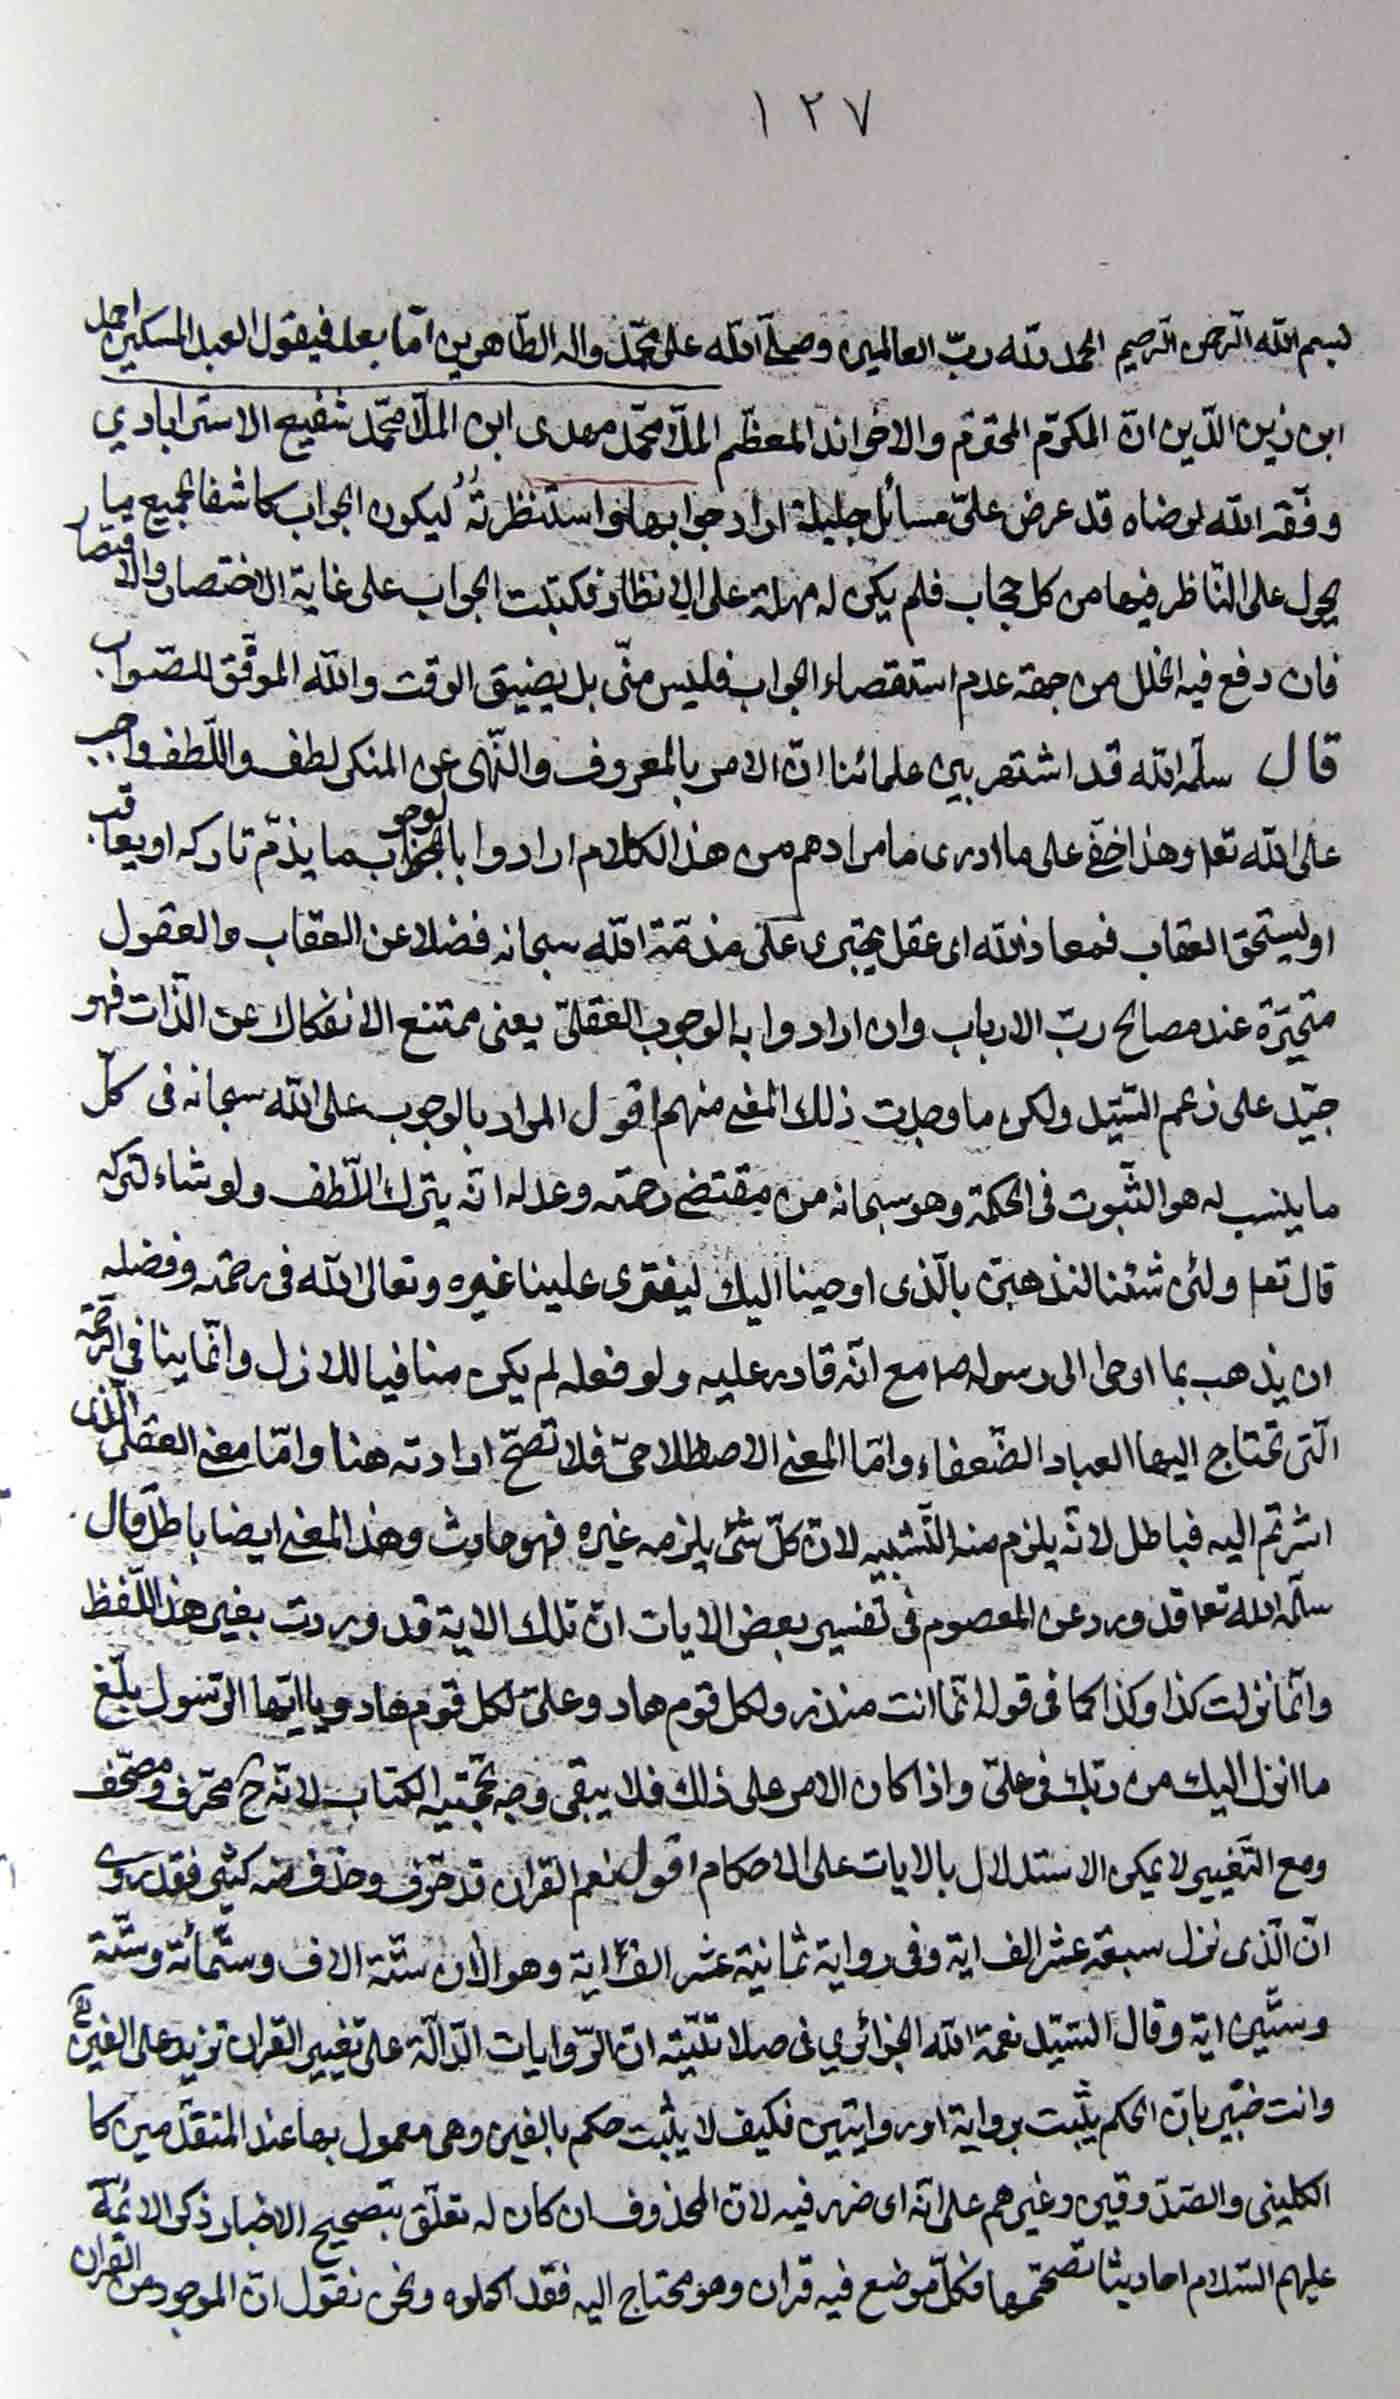 ١٢٧
بسم الله الرحمن الرحيم الحمد لله ربّ العالمين وصلّى الله على محمّد واله الطّاهرين امّا بعد فيقول العبد المسكين احمد
ابن زين الدّين انّ المكرّم المحترم والاخواند المعظّم الملّا محمّد مهدى ابن الملّا محمّد شفيع الاستراباذي
وفّقه الله لرضاه قد عرض علىّ مسائل جليلة اراد جوابها واستنظرتُه ليكون الجواب كاشفا لجميع ما
يحول على النّاظر فيها من كل حجاب فلم يكن له مهلة على الانظار فكتبت الجواب على غاية الاختصار والاقتصار
فان وقع فيه الخلل من جهة عدم استقصاء الجواب فليس منّى بل بضيق الوقت والله الموفّق للصّواب
قال سلّمه الله قد اشتهر بين علمائنا انّ الامر بالمعروف والنّهى عن المنكر لطف واللّطف واجب
على الله تعا وهذا خفىّ على ما ادرى ما مرادهم من هذا الكلام ارادوا بالوجوب ما يذمّ تاركه او يعاقب
او يستحق العقاب فمعاذ الله اى عقل يجترى على مذمّة الله سبحانه فضلا عن العقاب والعقول
متحيّرة عند مصالح ربّ الارباب وان ارادوا به الوجوب العقلىّ يعنى ممتنع الانفكاك عن الذّات فهو
جيّد على زعم السّيّد ولكن ما وجدت ذلك المعنى منهم اقول المراد بالوجوب على الله سبحانه فى كلّ
ما ينسب له هو الثّبوت فى الحكمة وهو سبحانه من مقتضى رحمته وعدله انّه يترك اللّطف ولو شاء لتركه
قال تعا ولئن شئنا لنذهبنّ بالّذى اوحينا اليك ليفترى علينا غيره وتعالى الله فى رحمته وفضله
ان يذهب بما اوحى الى رسوله ص مع انّه قادر عليه ولو فعله لم يكن منافيا للازل وانّما ينافى الرّحمة
الّتى تحتاج اليها العباد الضّعفاء وامّا المعنى الاصطلاحىّ فلا تصحّ ارادته هنا وامّا معنى العقلى الّذى
اشرتم اليه فباطل لانّه يلزم منه التّشبيه لانّ كلّ شئ يلزمه غيره فهو حادث وهذا المعنى ايضا باطل قال
سلّمه الله تعا قد ورد عن المعصوم فى تفسير بعض الايات انّ تلك الاية قد وردت بغير هذا اللّفظ
وانّما نزلت كذا وكذا كما فى قوله انّما انت منذر ولكل قوم هاد وعلىّ لكل قوم هاد ويا ايّها الرّسول بلّغ
ما انزل اليك من ربّك فى علىّ واذا كان الامر على ذلك فلا يبقى وجه بحجّتيه الكتاب لانّه ح محرّف ومصحّف
ومع التّغيير لا يمكن الاستدلال بالايات على الاحكام اقول نعم القران قد حرّف وحذف منه كثير فقد روى
انّ الّذى نزل سبعة عشر الف اية وفى رواية ثمانية عشر الف اية وهو الان ستّة الاف وستّمائة وستّة
وستّين اية وقال السّيّد نعمة الله الجزائري فى صلاتيّته انّ الرّوايات الدّالّة على تغيير القران تزيد على الفين
وانت خبير بانّ الحكم يثبت برواية او روايتين فكيف لا يثبت حكم بالفين وهى معمول بها عند المتقدّمين كا
الكلينى والصّدوقين وغيرهم على انّه اى ضرر فيه لانّ المحذوف ان كان له تعلّق بتصحيح الاخبار ذكر الائمّة
عليهم السّلام احاديثا تصحّحها فكلّ موضع فيه قران وهو محتاج اليه فقد اكملوه ونحن نقول انّ الموجود من القران